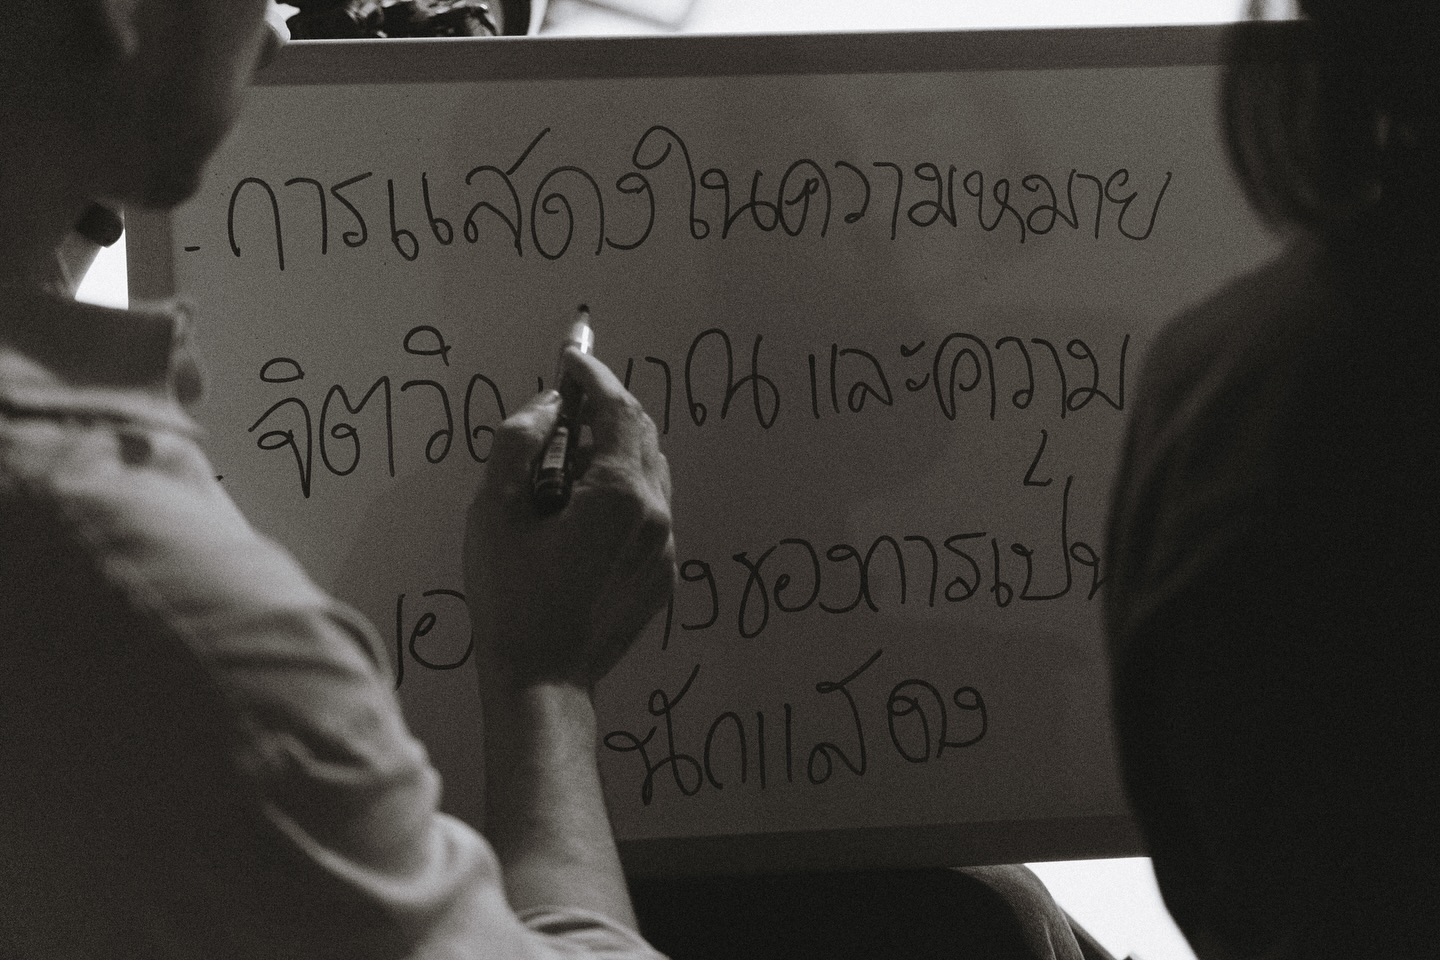 - การแสดงในความหมาย
จิตวิญญาณ และความ
ของการเป็น
นักแสดง